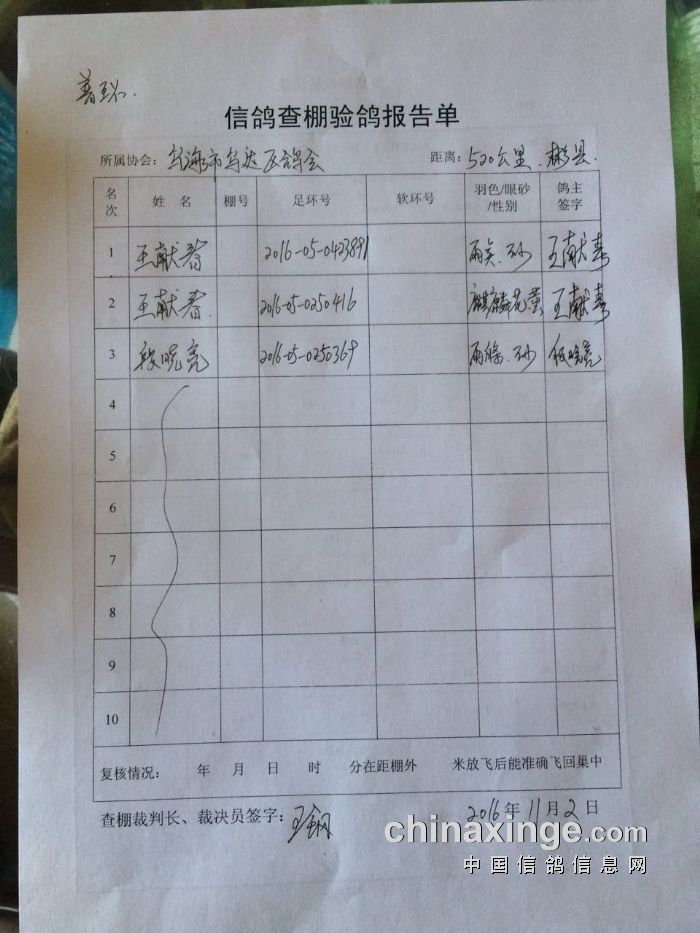 普环.
信鸽查棚验鸽报告单
所属协会: 乌海市乌达区鸽会 距离: 520公里.彬县.
名次 姓 名 棚号 足环号 软环号 羽色/眼砂/性别 鸽主签字
1 王献春 2016-05-0423891 雨点.砂 王献春
2 王献春. 2016-05-0250416 麒麟花黄 王献春
3 段晓亮 2016-05-0250369 雨绛.砂 段晓亮
4
5
6
7
8
9
10
复核情况: 年 月 日 时 分在距棚外 米放飞后能准确飞回集中
查棚裁判长、裁决员签字: 2016年11月2日
chinaxinge.com
中国信鸽信息网